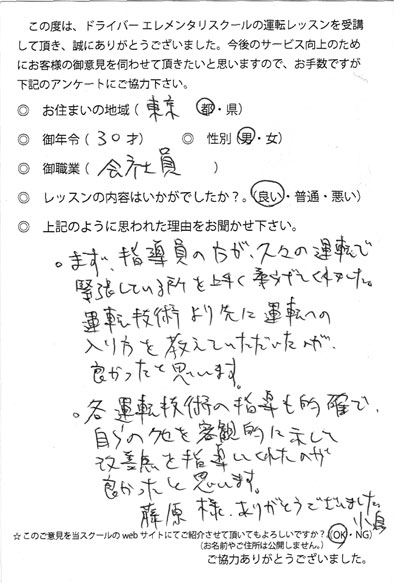 この度は、ドライバー エレメンタリスクールの運転レッスンを受講
して頂き、誠にありがとうございました。今後のサービス向上のため
にお客様の御意見を伺わせて頂きたいと思いますので、お手数ですが
下記のアンケートにご協力下さい。
◎ お住まいの地域（ 東京 都・県）
◎ 御年令（ 30才） ◎ 性別（男・女）
◎ 御職業（ 会社員 ）
◎ レッスンの内容はいかがでしたか？。（良い・普通・悪い）
◎ 上記のように思われた理由をお聞かせ下さい。
。まず、指導員の方が、久々の運転で
緊張している所を上手く和らげてくれました。
運転技術より先に運転への
入り方を教えていただいたのが、
良かったと思います。
。各運転技術の指導も的確で、
自らのクセを客観的に示して
改善点を指導してくれたのが
良かったと思います。
藤原様、ありがとうございました。
☆このご意見を当スクールの web サイトにてご紹介させて頂いてもよろしいですか？（OK・NG）
（お名前やご住所は公開しません。）
ご協力ありがとうございました。